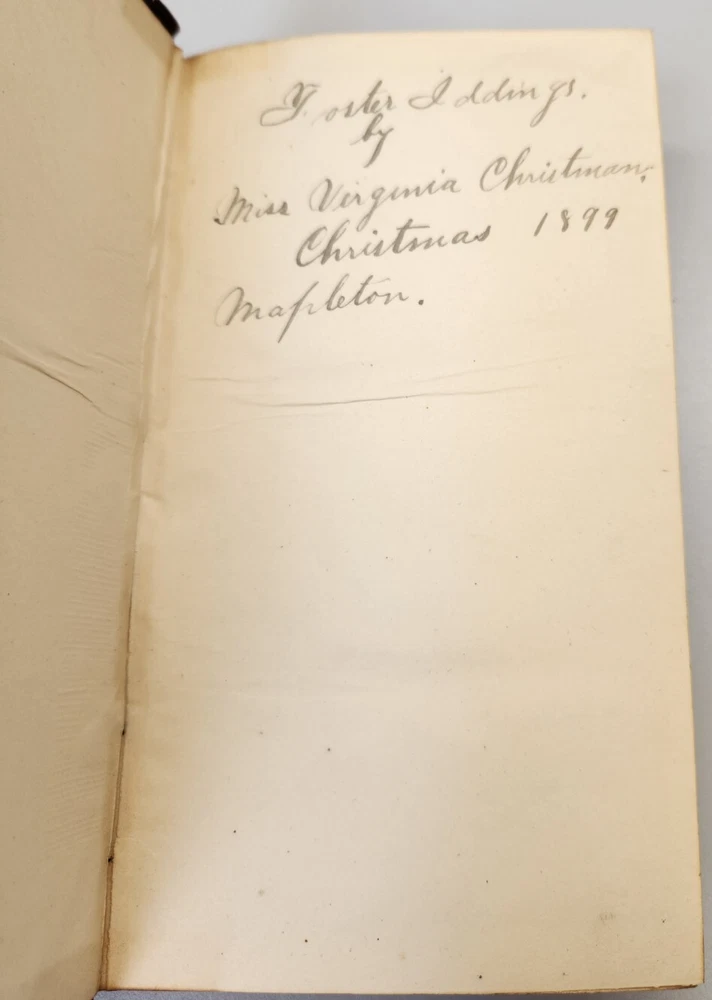 Foster Iddings.
by
Miss Virginia Christman.
Christmas 1899
Mapleton.